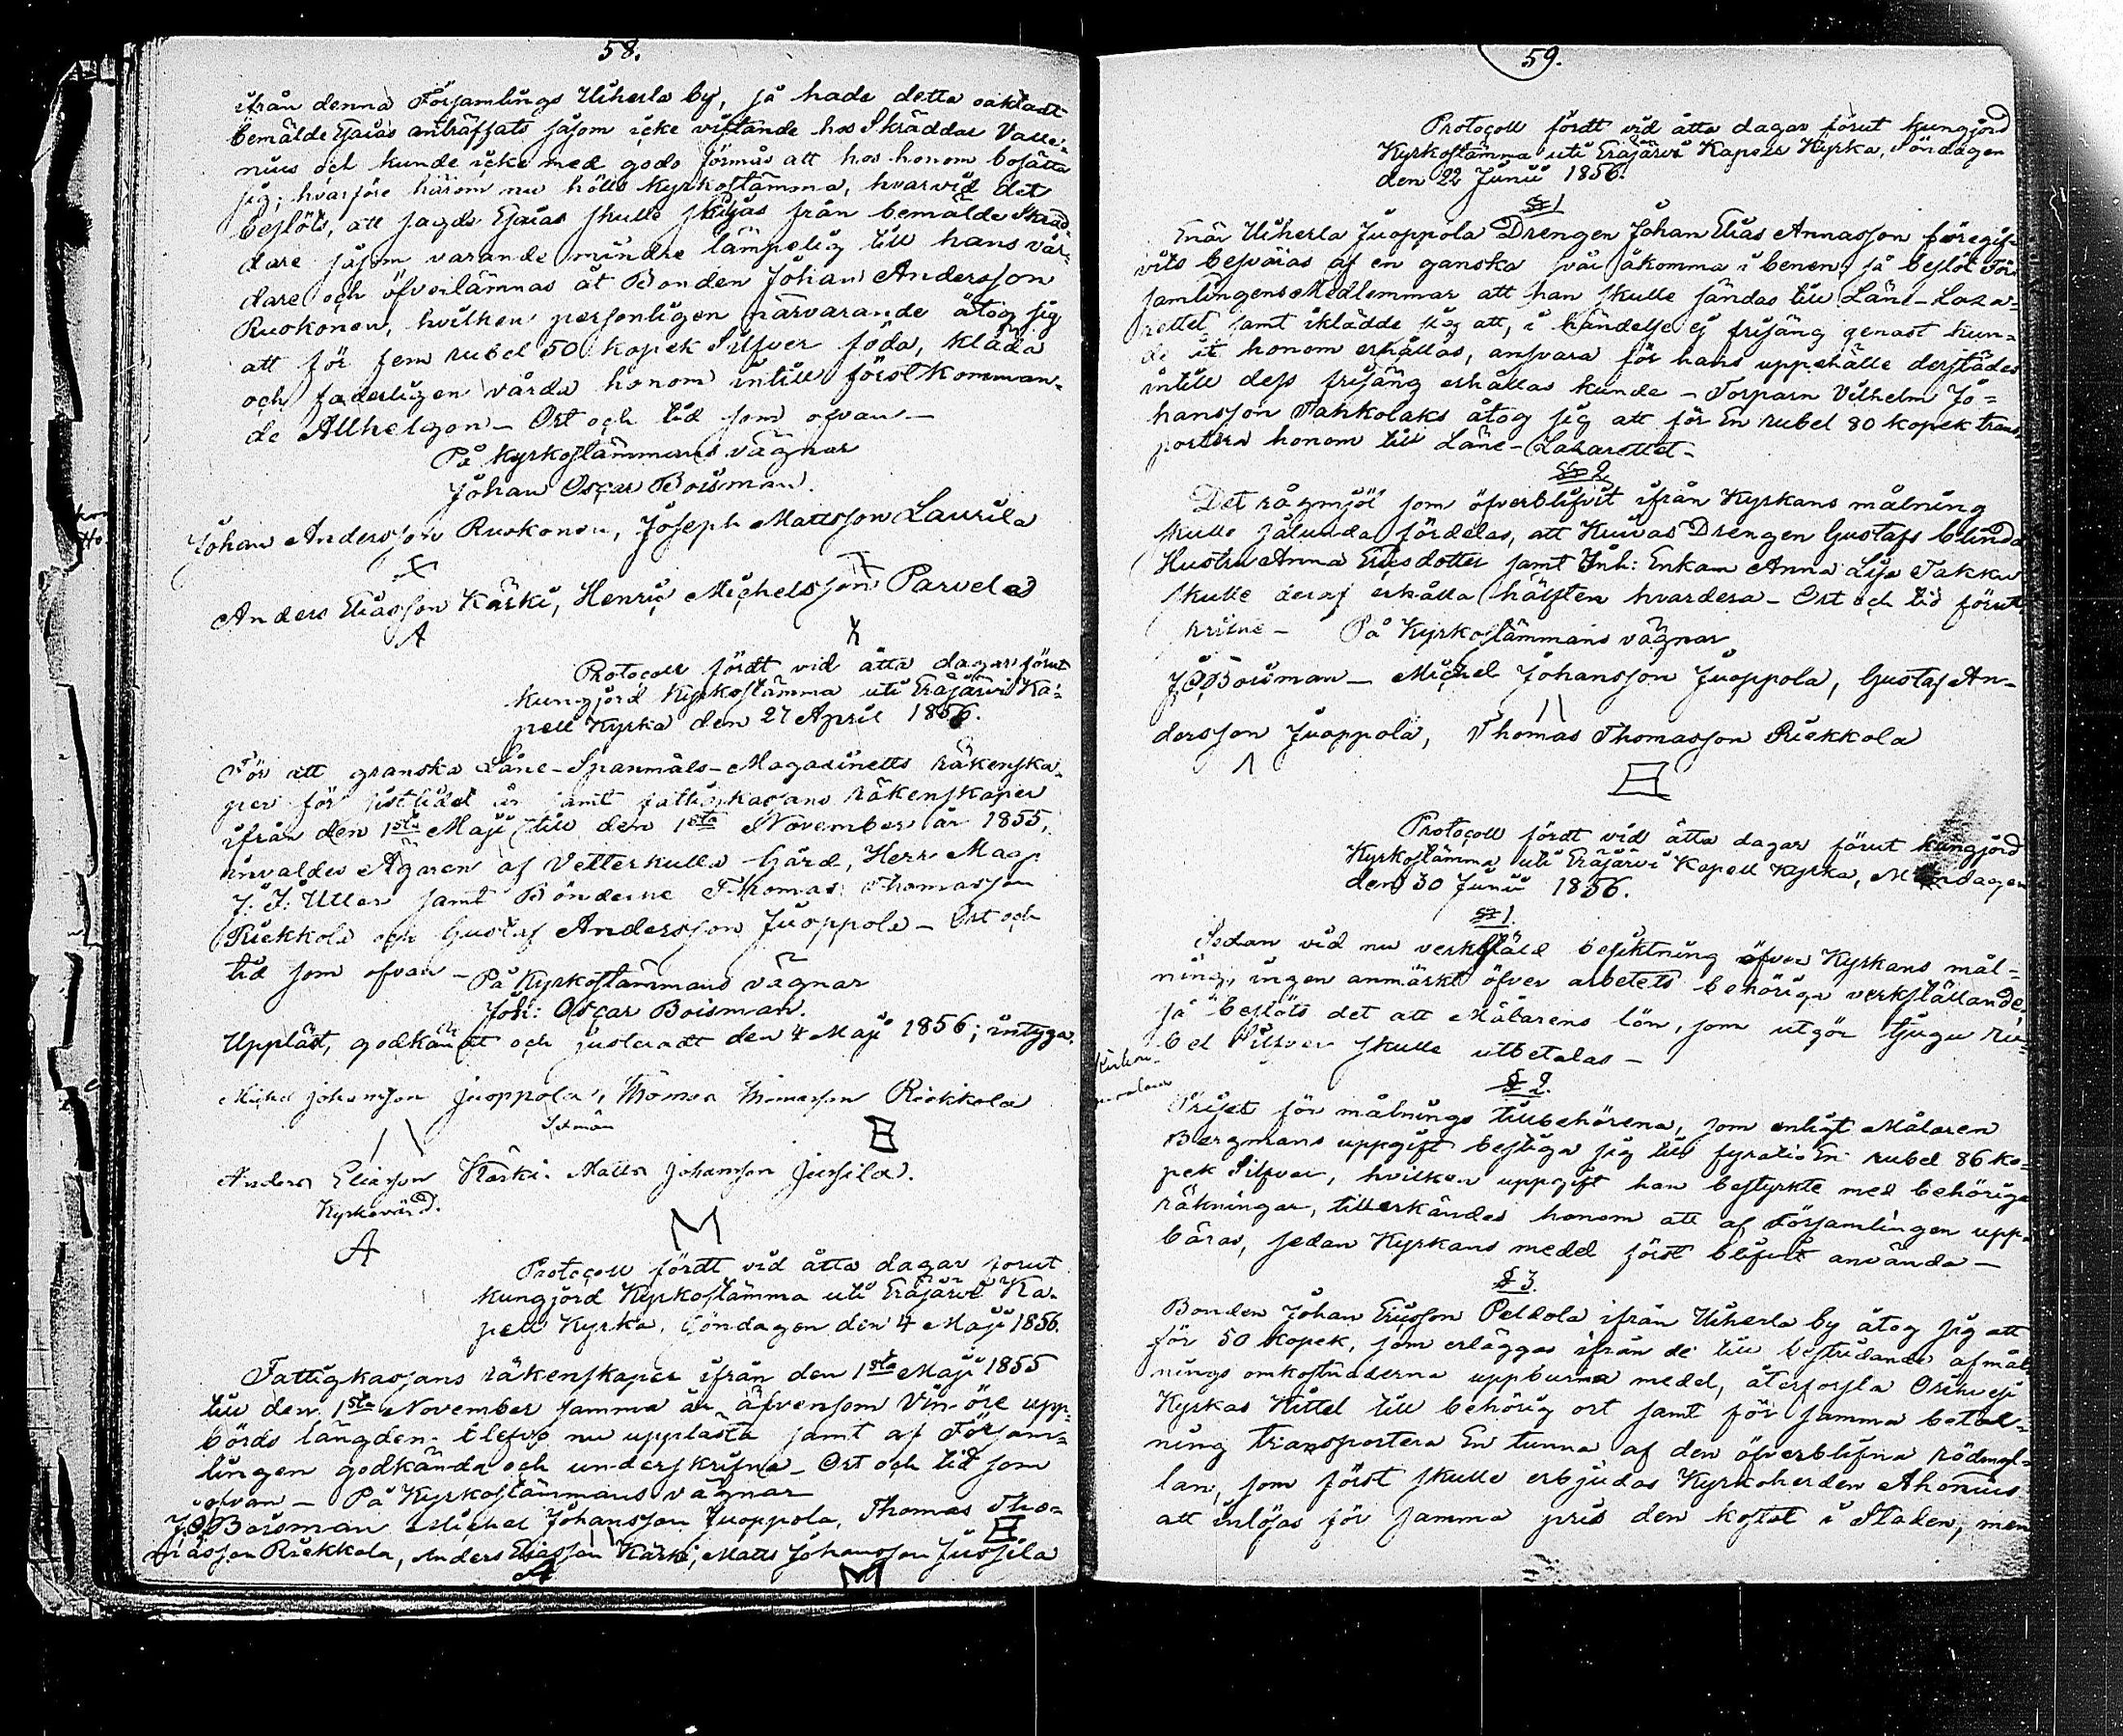 58.
ifrån denna Församlings Uiherla by, så hade detta oaktadt
bemälde Esaias anträffats såsom icke vistande hos Skräddar Valle-
nius och kunde icke med godo förmås att hos honom bosätta
sig; hvarföre härom nu hölls Kyrkostämma, hvarvid det
beslöts, att sagde Esaias skulle skiljas från bemälde Skräd-
dare såsom varande mindre lämpelig till hans vår-
dare och öfverlämnas åt Bonden Johan Andersson
Ruokonen, hvilken personligen närvarande åtog sig
att för fem rubel 50 kopek Silfver föda, kläda
och faderligen vårda honom intill förstkomman-
de Allhelgon – Ort och tid som ofvan –
På Kyrkostämmans vägnar
Johan Oscar Boisman.
Johan Andersson Ruokonen, Joseph Mattsson Laurila
Anders Eliasson Kärki, Henric Michelsson Parvela
A X
Protocoll fördt vid åtta dagar förut
kungjord Kyrkostämma uti Eräjärvi Ka-
pell Kyrka den 27 April 1856.
För att granska Låne-Spanmåls-Magasinetts räkenska-
per för sistlidet år samt fattigkassans räkenskaper
ifrån den 1sta Maji till den 1sta November år 1855,
invaldes Ägaren af Vetterkulla Gård, Herr Mag:
J: J: Utter samt Bönderne Thomas Thomasson
Riekkola och Gustaf Andersson Juoppola – Ort och
tid som ofvan – På Kyrkostämmans vägnar
Joh: Oscar Boisman.
Uppläst, godkändt och justeradt den 4 Maji 1856; intyga.
Michel Johansson Juoppola, Thomas Thomasson Riekkola
Sexmän
Anders Eliasson Kärki. Matts Johansson Jussila.
Kyrkovärd.
A M
Protocoll fördt vid åtta dagar förut
kungjord Kyrkostämma uti Eräjärvi Ka-
pell Kyrka, Söndagen den 4 Maji 1856.
Fattigkassans räkenskaper ifrån den 1sta Maji 1855
till den 1sta November samma år äfvensom Vin-öre upp-
börds längden blefvo nu upplästa samt af Försam-
lingen godkända och underskrifna – Ort och tid som
ofvan – På Kyrkostämmans vägnar
J.O. Boisman Michel Johansson Juoppola, Thomas Tho-
masson Riekkola, Anders Eliasson Kärki, Matts Johansson Jussila
A M
59.
Protocoll fördt vid åtta dagar förut kungjord
Kyrkostämma uti Eräjärvi Kapell Kyrka, Söndagen
den 22 Junii 1856.
§ 1
Enär Uiherla Juoppola Drengen Johan Elias Annasson föregif-
vits besväras af en ganska svår åkomma i benen, så beslöt För-
samlingens Medlemmar att han skulle sändas till Läne-Laza-
rettet samt iklädde sig att, i händelse ej frisäng genast kun-
de åt honom erhållas, ansvara för hans uppehälle derstädes
intill dess frisäng erhållas kunde – Torparn Vilhelm Jo-
hansson Tahkolaks åtog sig att för En rubel 80 kopek trans-
portera honom till Läne-Lazarettet –
§ 2
Det rågmjöl som öfverblifvit ifrån Kyrkans målning
skulle sålunda fördelas, att Kuivas Drengen Gustafs blinda
Hustru Anna Ericsdotter samt Inh: Enkan Anna Lisa Takku
skulle deraf erhålla hälften hvardera – Ort och tid förut
skrifne – På Kyrkostämmans vägnar
J.O. Boisman – Michel Johansson Juoppola, Gustaf An-
dersson Juoppola, Thomas Thomasson Riekkola
Protocoll fördt vid åtta dagar förut kungjord
Kyrkostämma uti Eräjärvi Kapell Kyrka, Måndagen
den 30 Junii 1856.
§ 1.
Sedan vid nu verkställd besiktning öfver Kyrkans mål-
ning, ingen anmärkt öfver arbetets behöriga verkställande,
så beslöts det att Målarens lön, som utgör tjugu ru-
bel Silfver skulle utbetalas –
§ 2.
Priset för målnings tillbehörena, som enligt Målaren
Bergmans uppgift bestiga sig till fyratio En rubel 86 ko-
pek Silfver, hvilken uppgift han bestyrkte med behöriga
räkningar, tillerkändes honom att af Församlingen upp-
bäras, sedan Kyrkans medel först blifvit använda –
§ 3.
Bonden Johan Ericsson Peldola ifrån Uiherla by åtog sig att
för 50 kopek, som erläggas ifrån de till bestridande af mål-
nings omkostnaderna uppburna medel, återforsla Orihvesi
Kyrkas Kittel till behörig ort samt för samma betal-
ning transportera En tunna af den öfverblifna rödmyl-
lan, som först skulle erbjudas Kyrkoherden Ahonius
att inlösas för samma pris den kostat i Staden, men